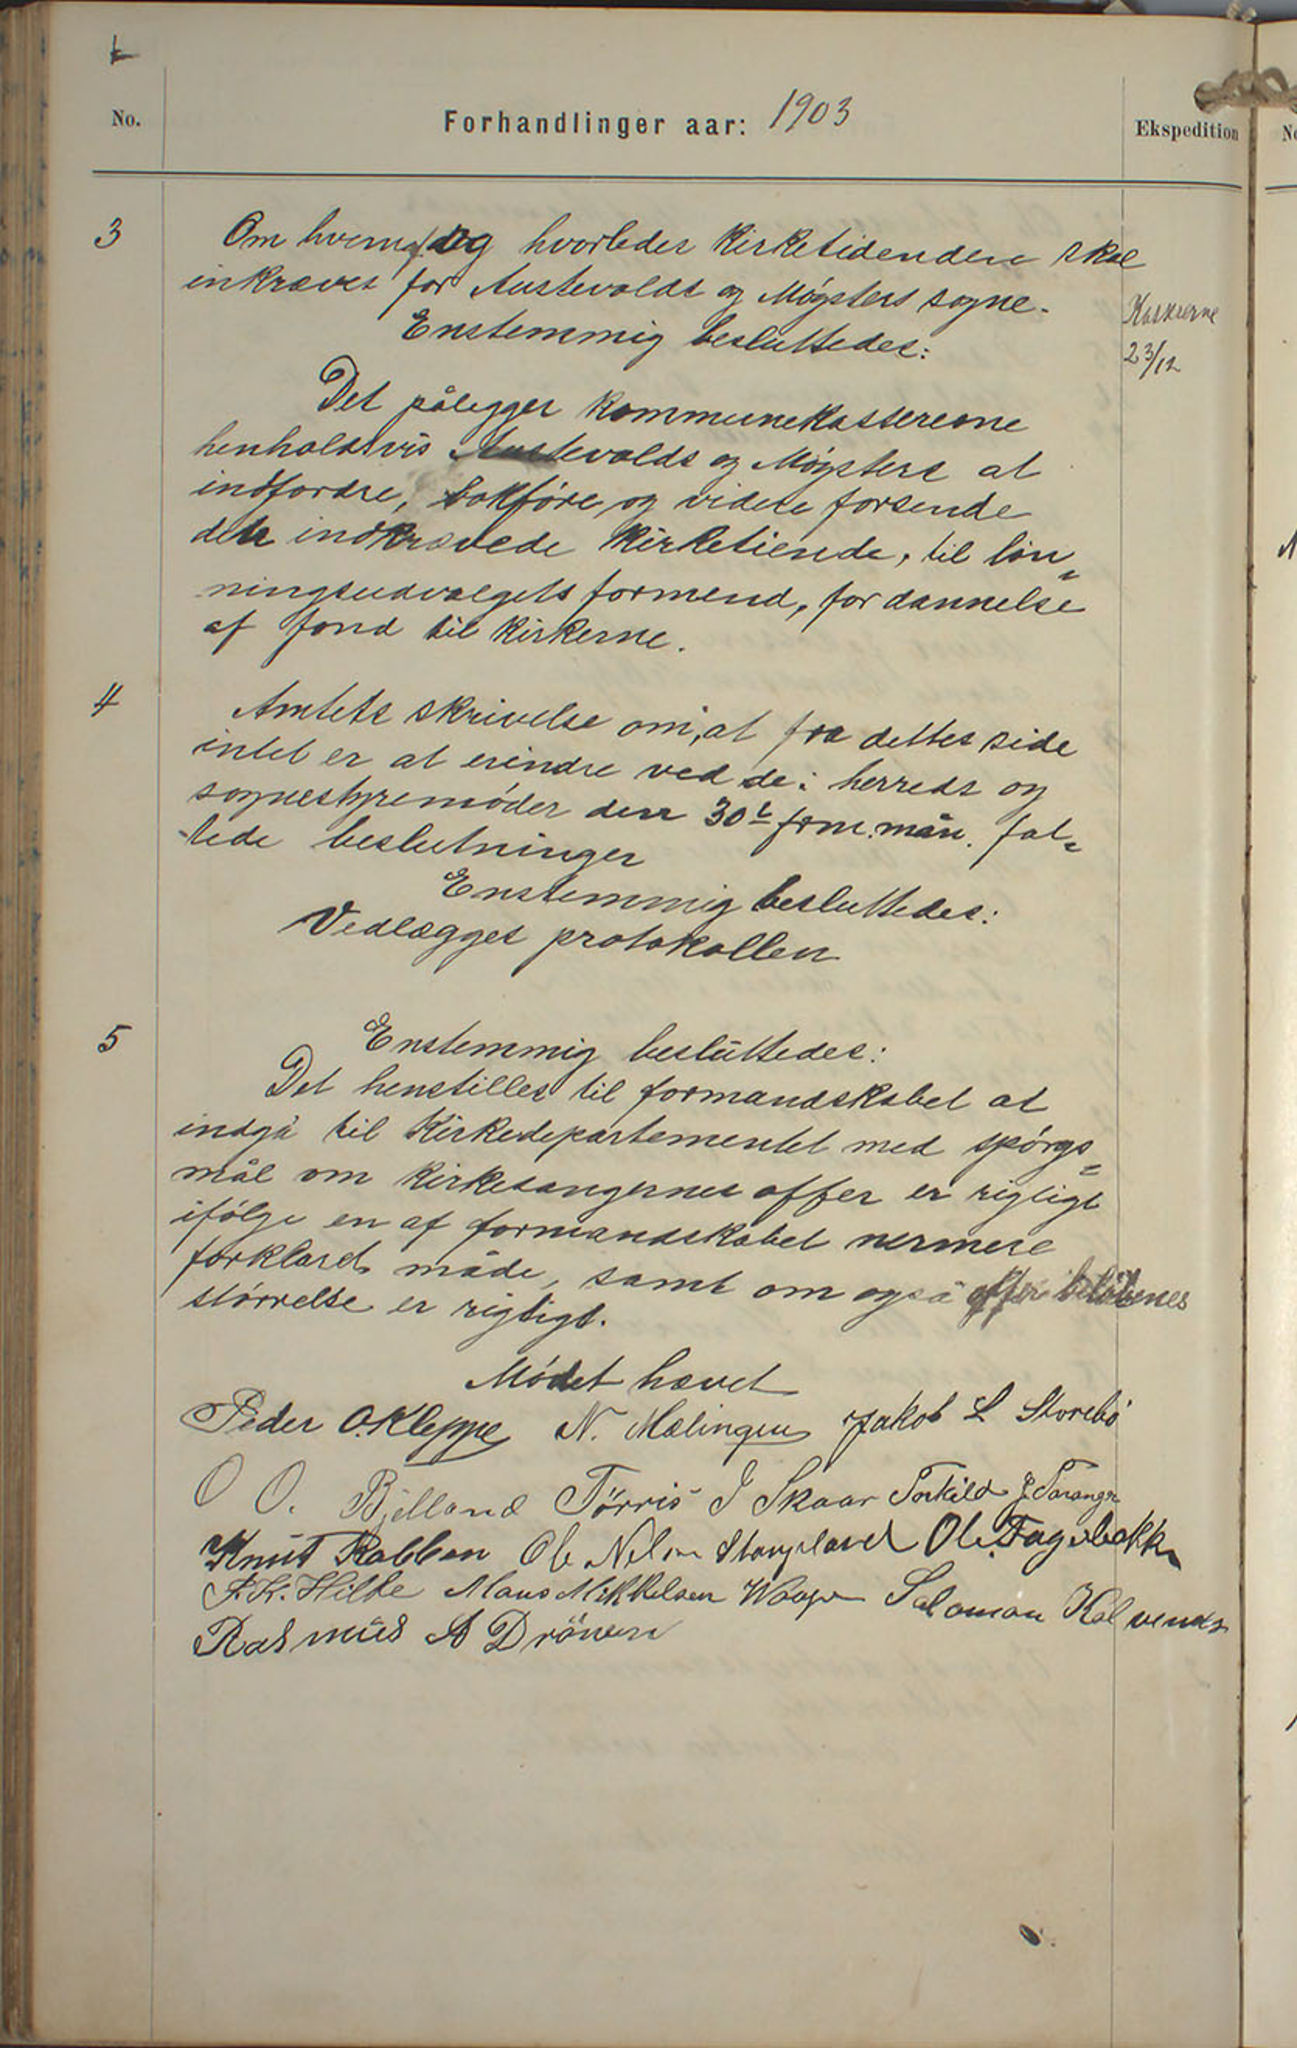 No.
Forhandlinger aar: 1903
Ekspedition
3
Om hvem og hvorledes Kirketidenden skal
inkræves for Austevolds og Møgsters sogne.
Enstemmig besluttedes:
Kasserne
23/12
Det pålegges kommunekassererne
henholdsvis Austevolds og Møgsters at
indfordre, bokføre og videre forsende
den indkrævede Kirketiende, til løn=
ningsudvalgets formend, for dannelse
af fond til Kirkerne.
4
Amtets skrivelse om, at fra dettes side
intet er at erindre ved de i herreds og
sognestyremøder den 30t frm. mån. fat=
tede beslutninger
Enstemmig besluttedes:
Vedlægges protokollen
5
Enstemmig besluttedes:
Det henstilles til formandskabet at
indgå til Kirkedepartementet med spørgs=
mål om Kirkesangernes offer er rigtigt
ifølge en af formandskabet nermere
forklaret måde, samt om også offerbeløbenes
størrelse er rigtigt.
Mødet hævet
Peder O. Kleppe N. Mælingen Jakob L Storebø
O O. Bjelland Törris J Skaar Torkild J. Taranger
Knut Rabben Ole Nilsen Stangeland Ole Fagerbakke
Mons Mikkelsen Waage Salomon Kalvenes
Rasmus A Drönen